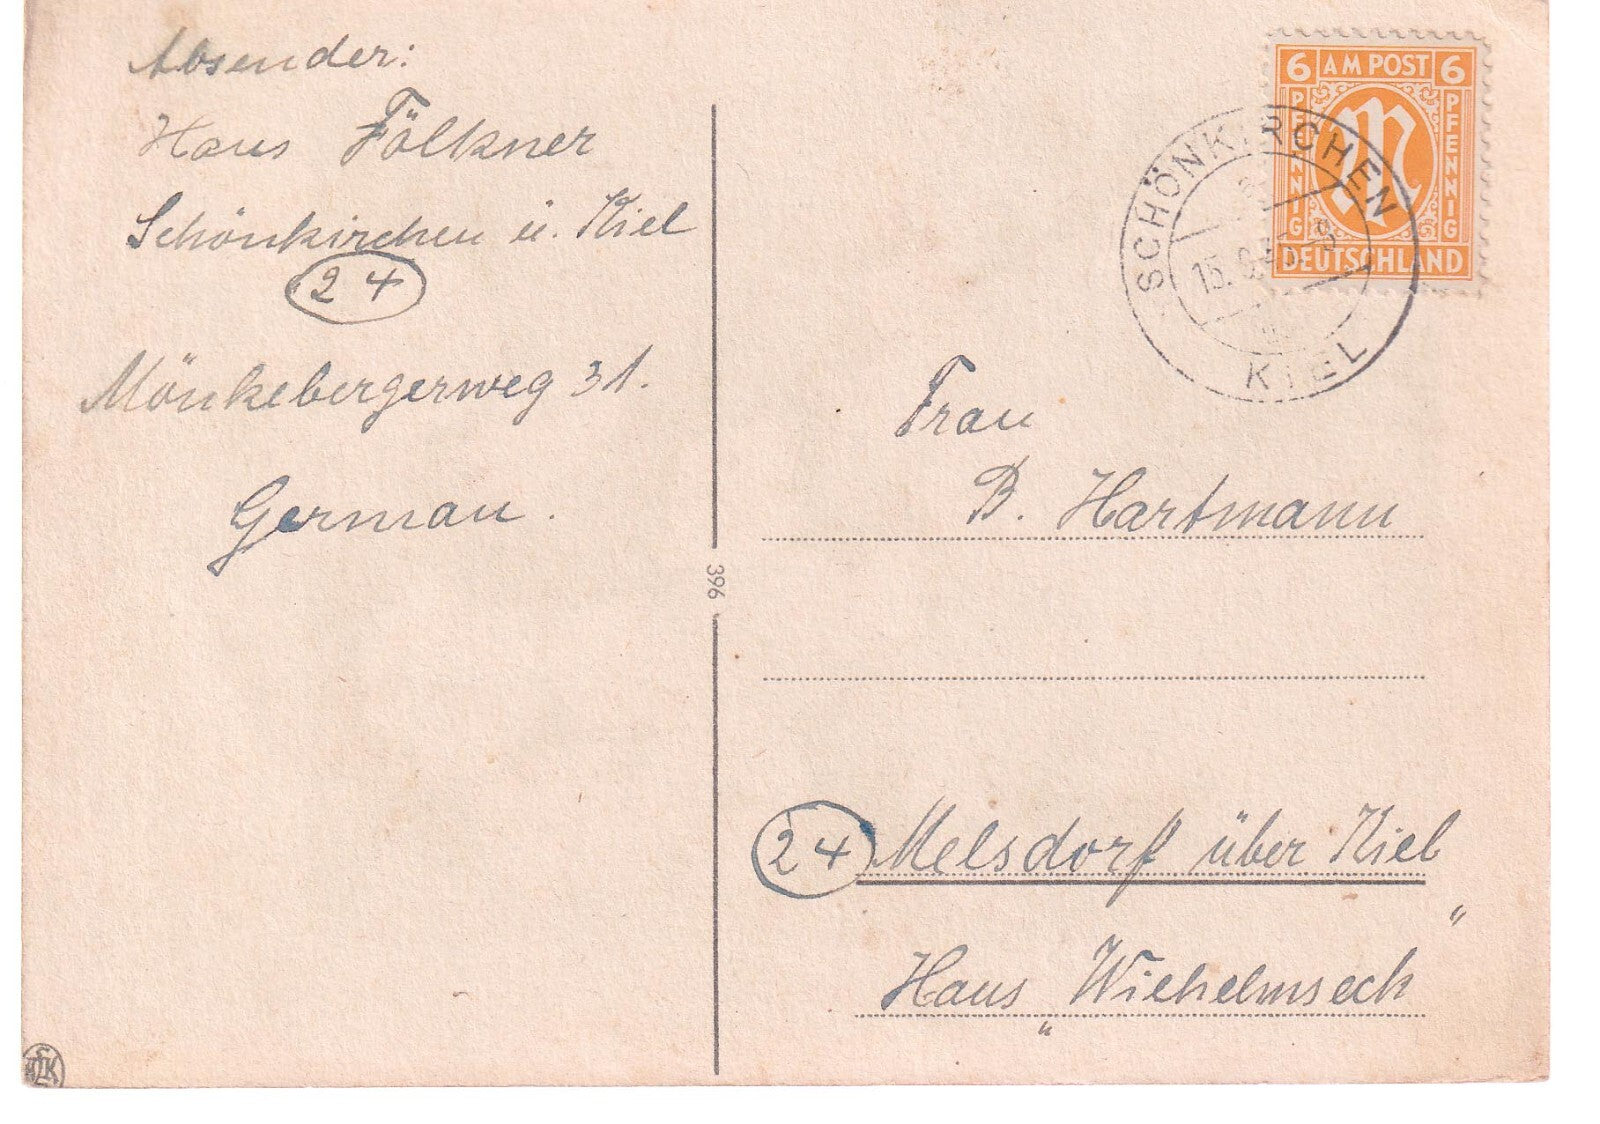 Absender:
Hans Fölkner
Schönkirchen ü. Kiel
24
Mönkebergerweg 31.
German.
396
6 AM POST 6
PFENNIG
PFENNIG
DEUTSCHLAND
SCHÖNKIRCHEN
15.
KIEL
Frau
B. Hartmann
24 Melsdorf über Kiel
Haus „Wilhelmseck“